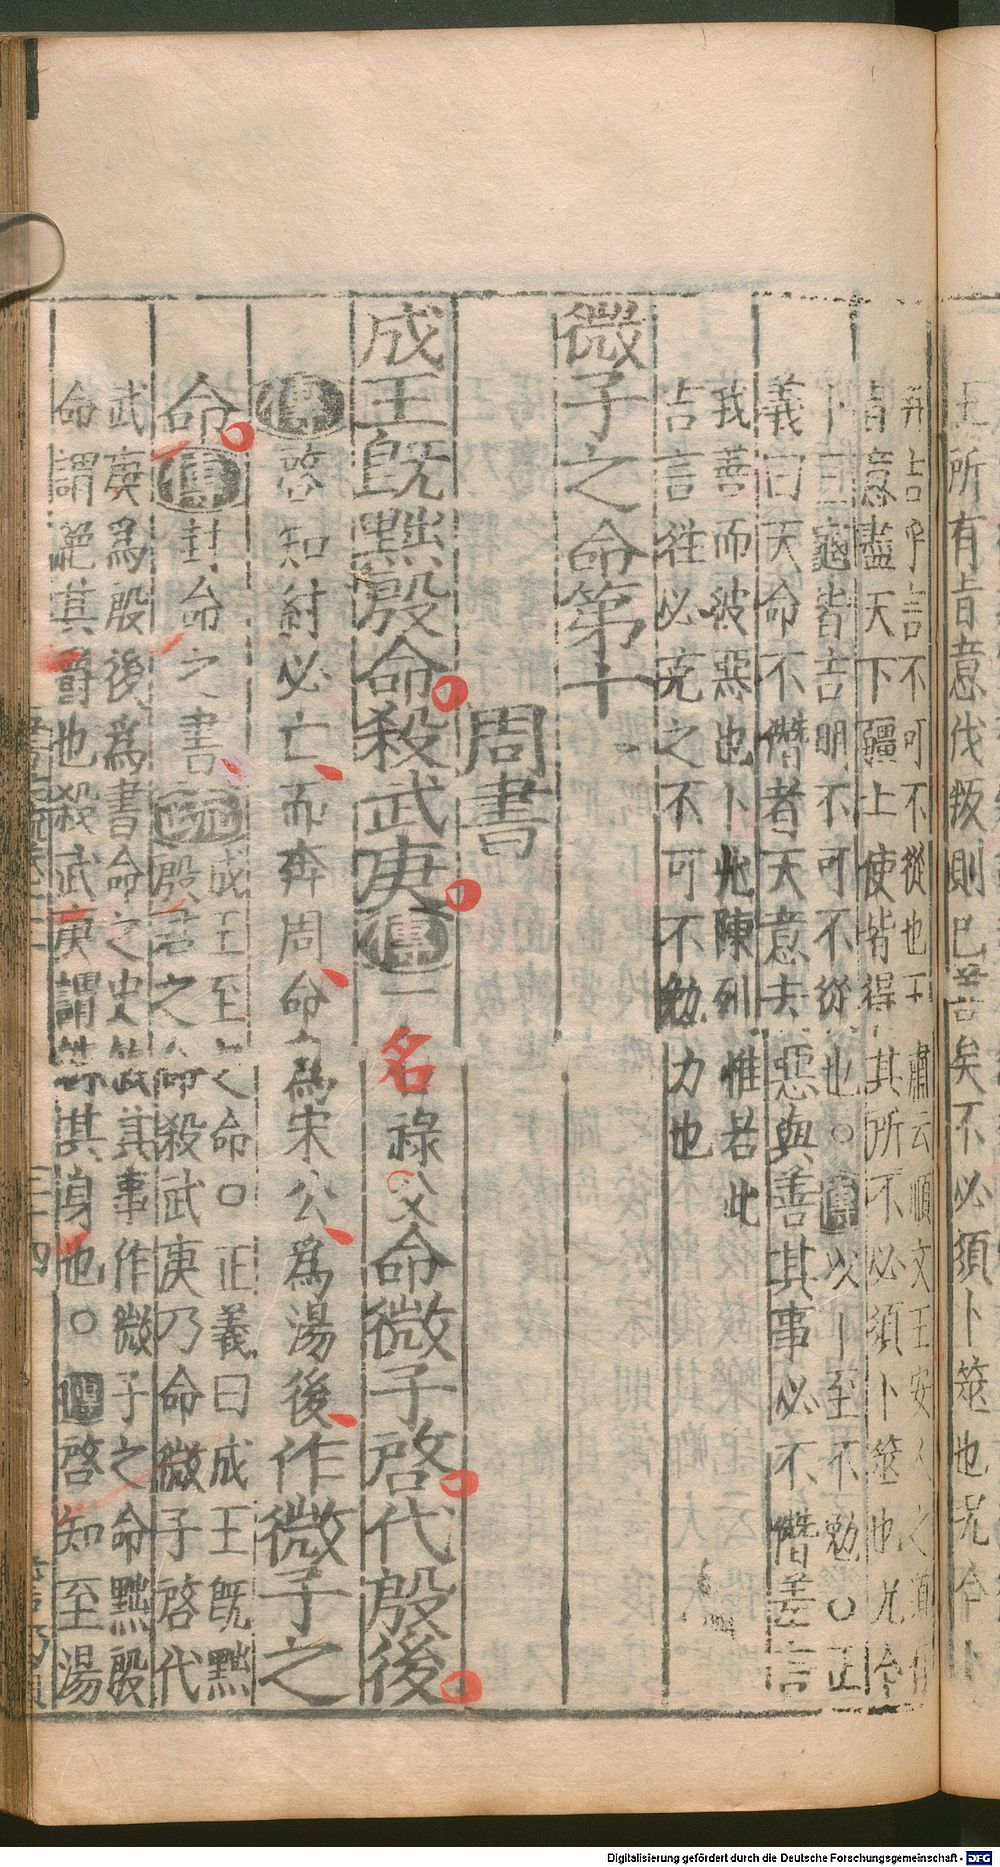 王所有旨意伐叛則已善矣不必須卜筮也况今卜
并吉乎言不可不從也 肅云順文王安人之道
旨意盡天下疆土使皆得其所不必須卜筮也况今
卜三龜皆吉明不可不從也○傳以卜至不勉○正
義曰天命不僭者天意去惡與善其事必不僭差言
我善而彼惡也卜兆陳列惟若此
吉言往必克之不可不勉力也
微子之命第十
周書
成王既黜殷命殺武庚傳一名祿父命微子啓代殷後
傳啓知紂必亡而奔周命爲宋公爲湯後作微子之
命傳封命之書疏成王至之命○正義曰成王既黜
殷君之命殺武庚乃命微子啓代
武庚爲殷後爲書命之史敘其事作微子之命黜殷
命謂絕其爵也殺武庚謂誅其身也○傳啓知至湯
三十四
Digitalisierung gefördert durch die Deutsche Forschungsgemeinschaft - DFG